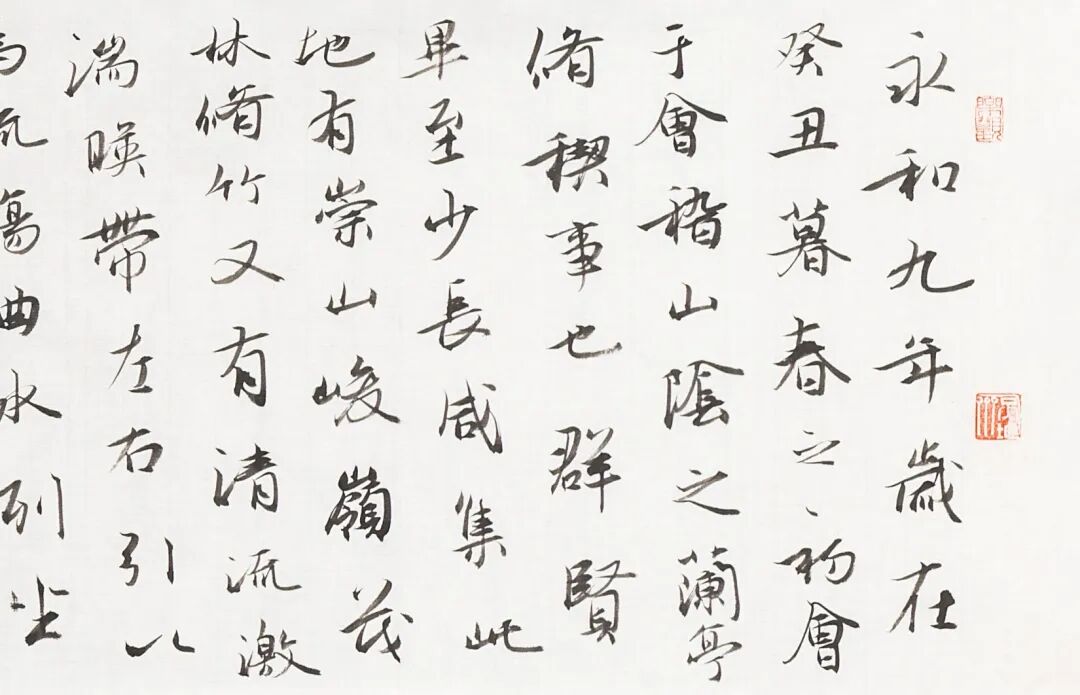 永和九年歲在
癸丑暮春之初會
于會稽山陰之蘭亭
脩稧事也群賢
畢至少長咸集此
地有崇山峻嶺茂
林脩竹又有清流激
湍暎帶左右引以
為流觴曲水列坐